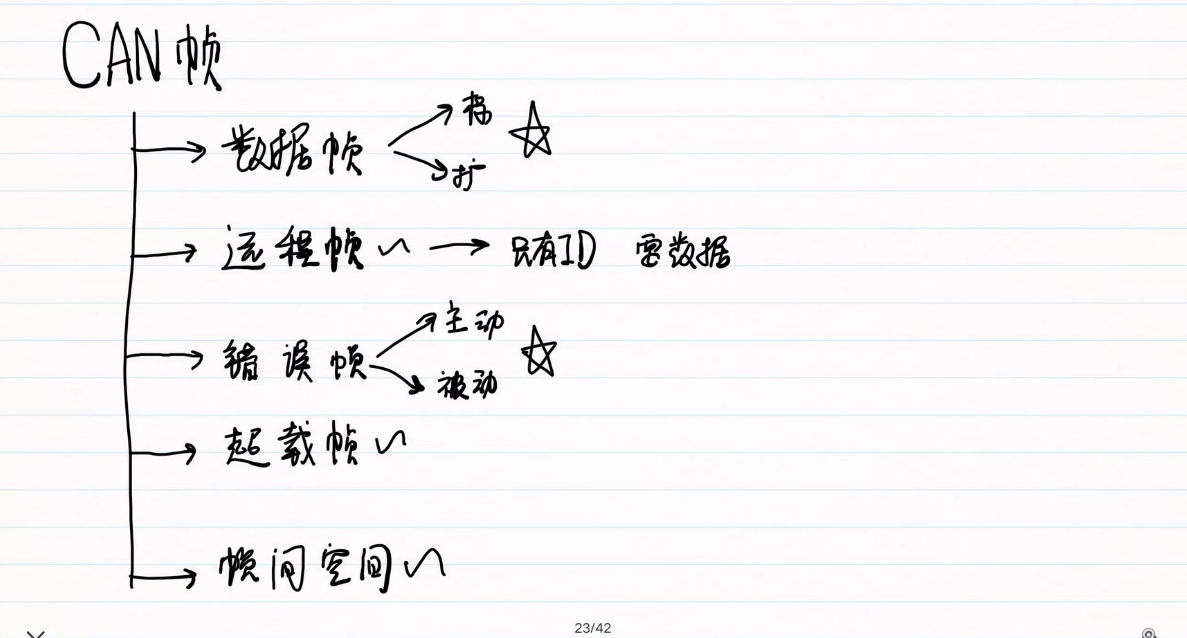 CAN帧
数据帧
标
扩
远程帧 → 只有ID 要数据
错误帧
主动
被动
超载帧
帧间空间
23/42